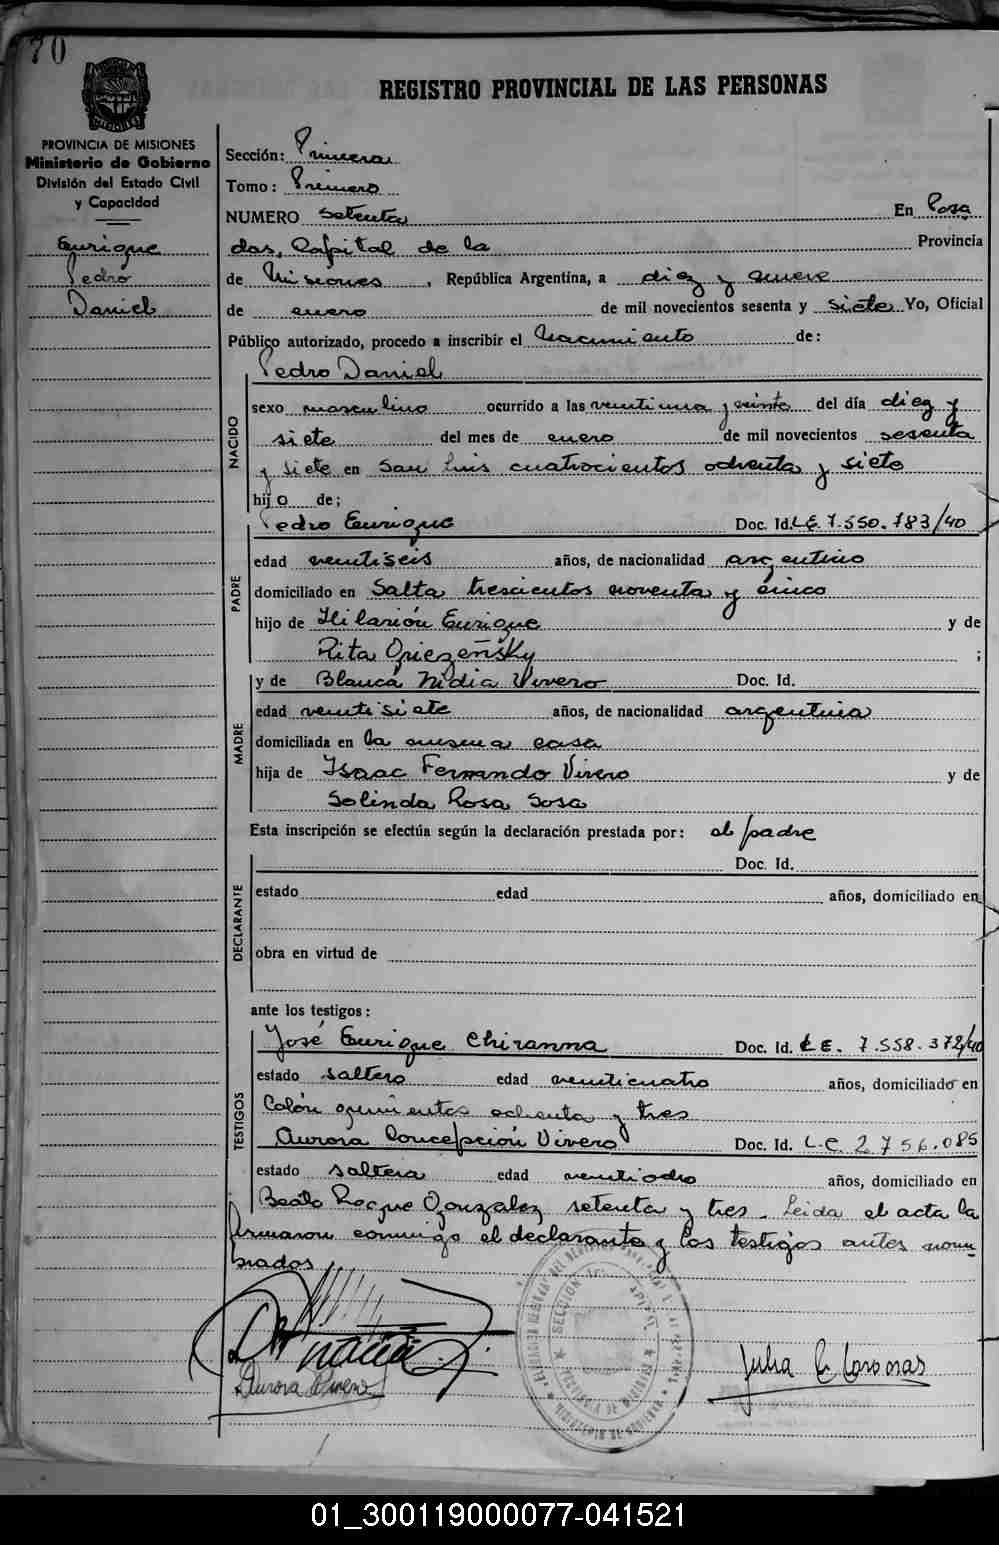 70
REGISTRO PROVINCIAL DE LAS PERSONAS
PROVINCIA DE MISIONES
Ministerio de Gobierno
División del Estado Civil
y Capacidad
Enrique
Pedro
Daniel
Sección: Primera
Tomo: Primero
NUMERO setenta En Posa
das, Capital de la Provincia
de Misiones, República Argentina, a diez y nueve
de enero de mil novecientos sesenta y siete Yo, Oficial
Público autorizado, procedo a inscribir el Nacimiento de:
NACIDO
Pedro Daniel
sexo masculino ocurrido a las veintiuna y veinte del día diez y
siete del mes de enero de mil novecientos sesenta
y siete en San Luis cuatrocientos ochenta y siete
hijo de;
PADRE
Pedro Enrique Doc. Id. L.E. 7.550.783/40
edad veintiseis años, de nacionalidad argentino
domiciliado en Salta trescientos noventa y cinco
hijo de Hilarión Enrique y de
Rita ;
MADRE
y de Blanca Nidia Vivero Doc. Id.
edad veintisiete años, de nacionalidad argentina
domiciliada en la misma casa
hija de Isaac Fernando Vivero y de
Solinda Rosa Sosa
Esta inscripción se efectúa según la declaración prestada por: el padre
DECLARANTE
Doc. Id.
estado edad años, domiciliado en
obra en virtud de
ante los testigos:
TESTIGOS
José Enrique Chiranna Doc. Id. L.E. 7.558.372/40
estado soltero edad veinticuatro años, domiciliado en
Colón quinientos ochenta y tres
Aurora Concepción Vivero Doc. Id. L.C. 2756.085
estado soltera edad veintiocho años, domiciliado en
Beato Roque Gonzalez setenta y tres. Leida el acta la
firmaron conmigo el declarante y los testigos antes nom
brados
Aurora Vivero
Julia C.
SECCIÓN
PROVINCIA DE MISIONES
01_300119000077-041521